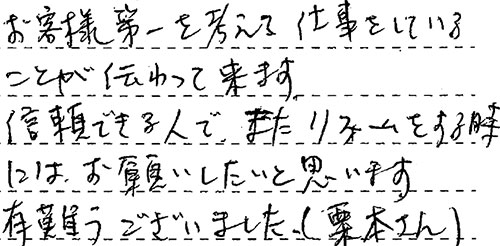 お客様第一を考える仕事をしている
ことが伝わって来ます
信頼できる人で、またリフォームをする時
には、お願いしたいと思います
有難うございました。(栗本さん)